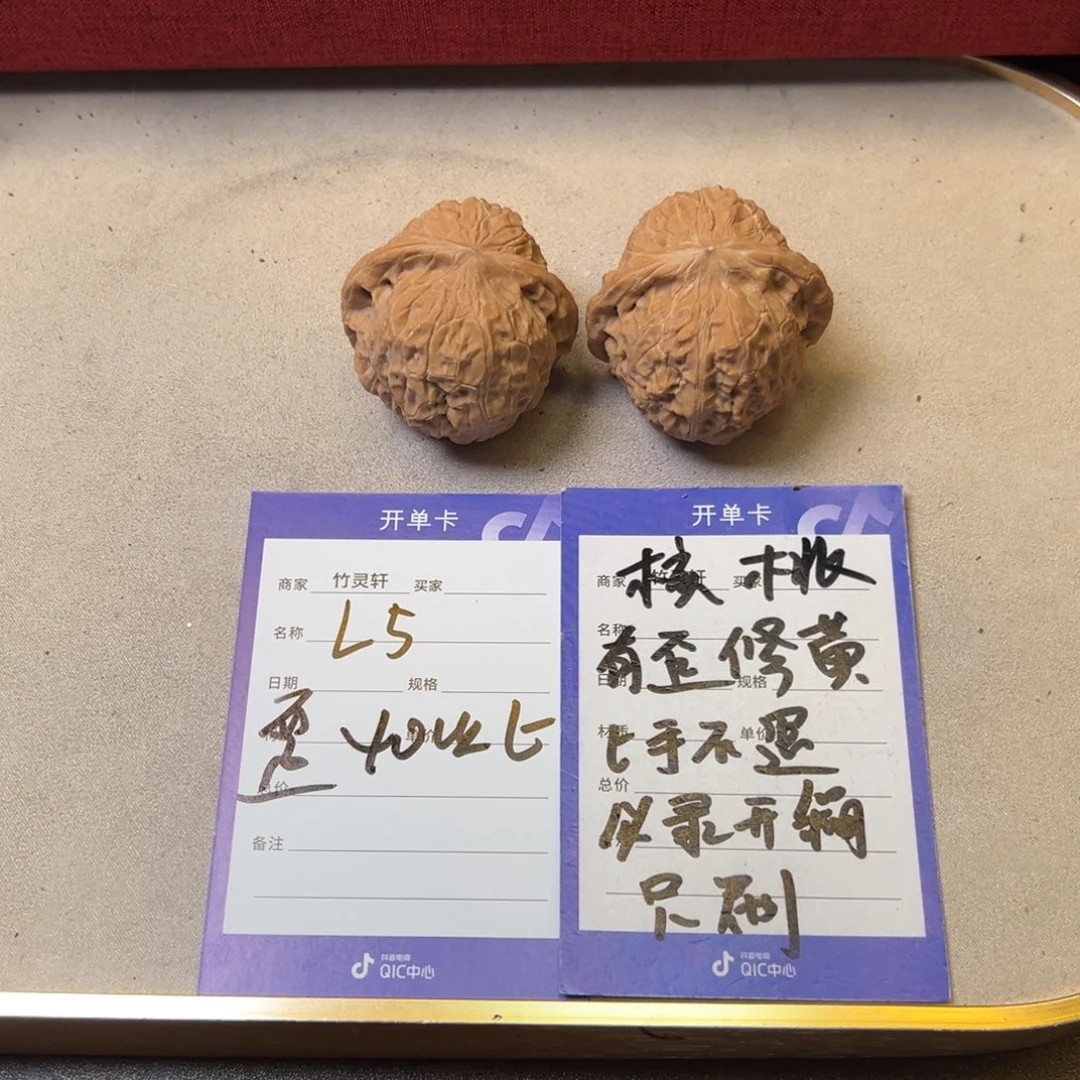 开单卡
商家 竹灵轩 买家
名称 L5
日期 规格
单价
总价
备注
抖音电商
QIC中心
开单卡
商家 竹灵轩 买家
名称
日期 规格
材质 单价
总价
核桃
有歪修黄
上手不退
必录开箱
只刷
抖音电商
QIC中心